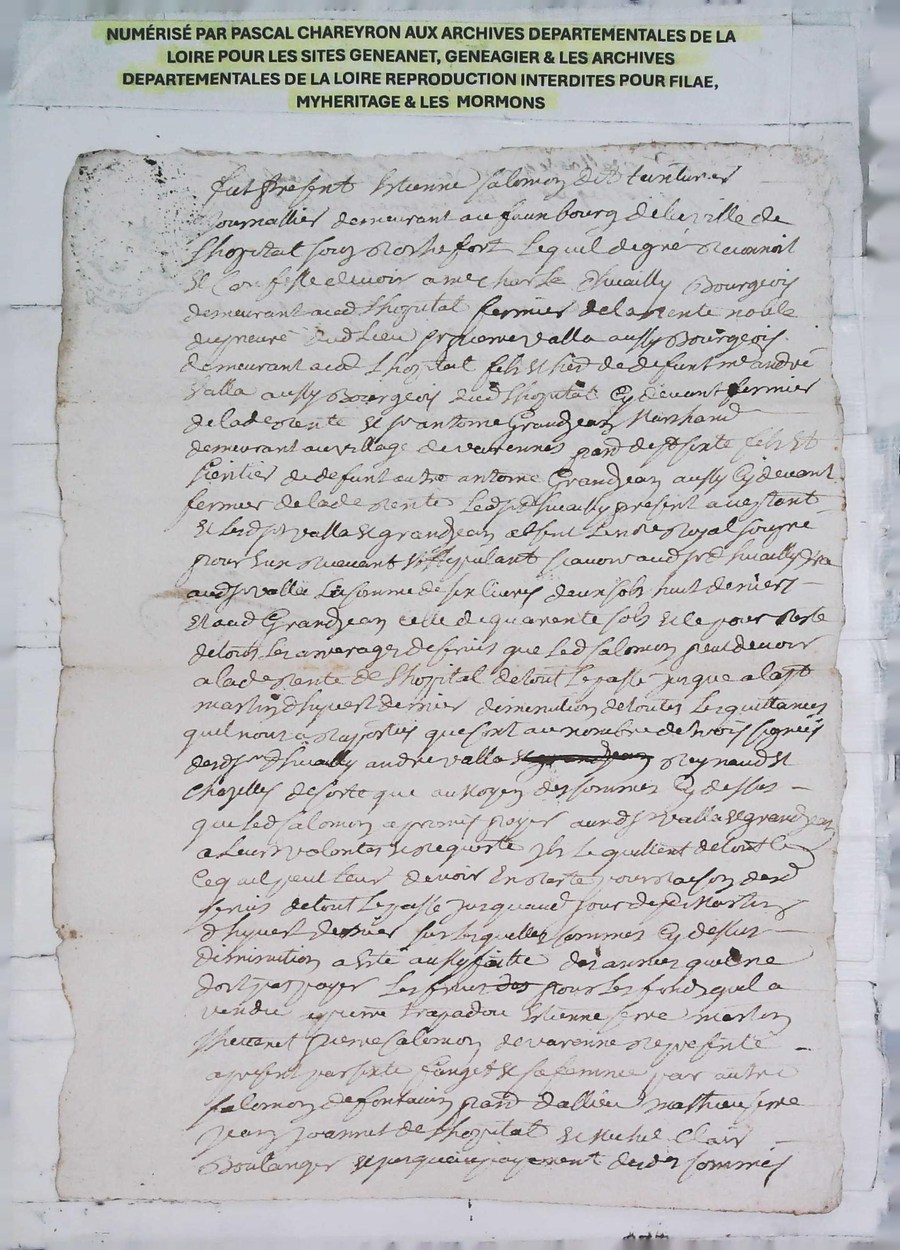 NUMÉRISÉ PAR PASCAL CHAREYRON AUX ARCHIVES DEPARTEMENTALES DE LA
LOIRE POUR LES SITES GENEANET, GENEAGIER & LES ARCHIVES
DEPARTEMENTALES DE LA LOIRE REPRODUCTION INTERDITES POUR FILAE,
MYHERITAGE & LES MORMONS
fut present Estienne Salomon dit teinturier
Journallier demeurant au faux bourg de la ville de
Lhopital sous Rochefort Lequel de gré Reconnoit
Et Confesse devoir a me Charle Bourgeois
demeurant aud Lhopital fermier de la rente noble
du prieuré dud Lieu valla aussy Bourgeois
demeurant aud Lhopital fils et de defunt me andré
Valla aussy Bourgeois dud Lhopital Cy devant fermier
de lade Rente et sr antoine Grandjean Marchand
demeurant au village de varennes par de st sixte fils Et
heritier de defunt autre antoine Grandjean aussy Cy devant
fermier de lade Rente Led sr present acceptant
Et Led sr valla et grandjean absent Le no Royal
pour Eux Recevant et stipulant scavoir aud sr
aud sr valla La somme de six livres deux sols huit deniers
Et aud Grandjean celle de quarente sols pour Reste
de tous Les arrerages de servis que Led Salomon peut devoir
a lade Rente de Lhopital de tout Le passé jusque a la st
martin d'hyvert dernier deminution de toutes Les quittances
quil nous a Rapportées que sont au nombre de trois signées
andre valla Reynaud et
Chazelles de sorte que au moyen des sommes Cy dessus
que Led Salomon a promis payer aud sr valla et grandjean
a Leurs volontés et Requeste ils Le quittent de tout Ce
Ce quil peut Leur devoir En Reste pour Raison desd
servis de tout Le passé jusquaud jour de st Martin
d'hyvert dernier sur Lesquelles sommes Cy dessus
diminution a Esté aussy faitte des années quil ne
doit pas payer Les servis pour Les fonds quil a
vendu a pierre trapadou Estienne serre marton
Thevenet pierre Salomon de varenne
a present par sixte et sa femme par autre
Salomon de fontaine par dallieu mathieu serre
Jean Joannet de Lhopital et Michel Clair
Boulanger et jusque au payement desd sommes